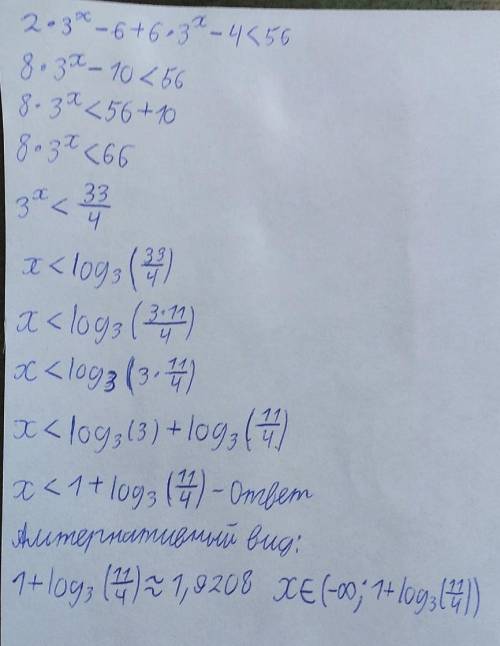 2·3^x-6+6·3^x-4<56
8·3^x-10<56
8·3^x<56+10
8·3^x<66
3^x<33/4
x<log₃(33/4)
x<log₃(3·11/4)
x<log₃(3·11/4)
x<log₃(3)+log₃(11/4)
x<1+log₃(11/4)-Ответ
Алтернативный вид:
1+log₃(11/4)≈1,9208 x∈(-∞;1+log₃(11/4))